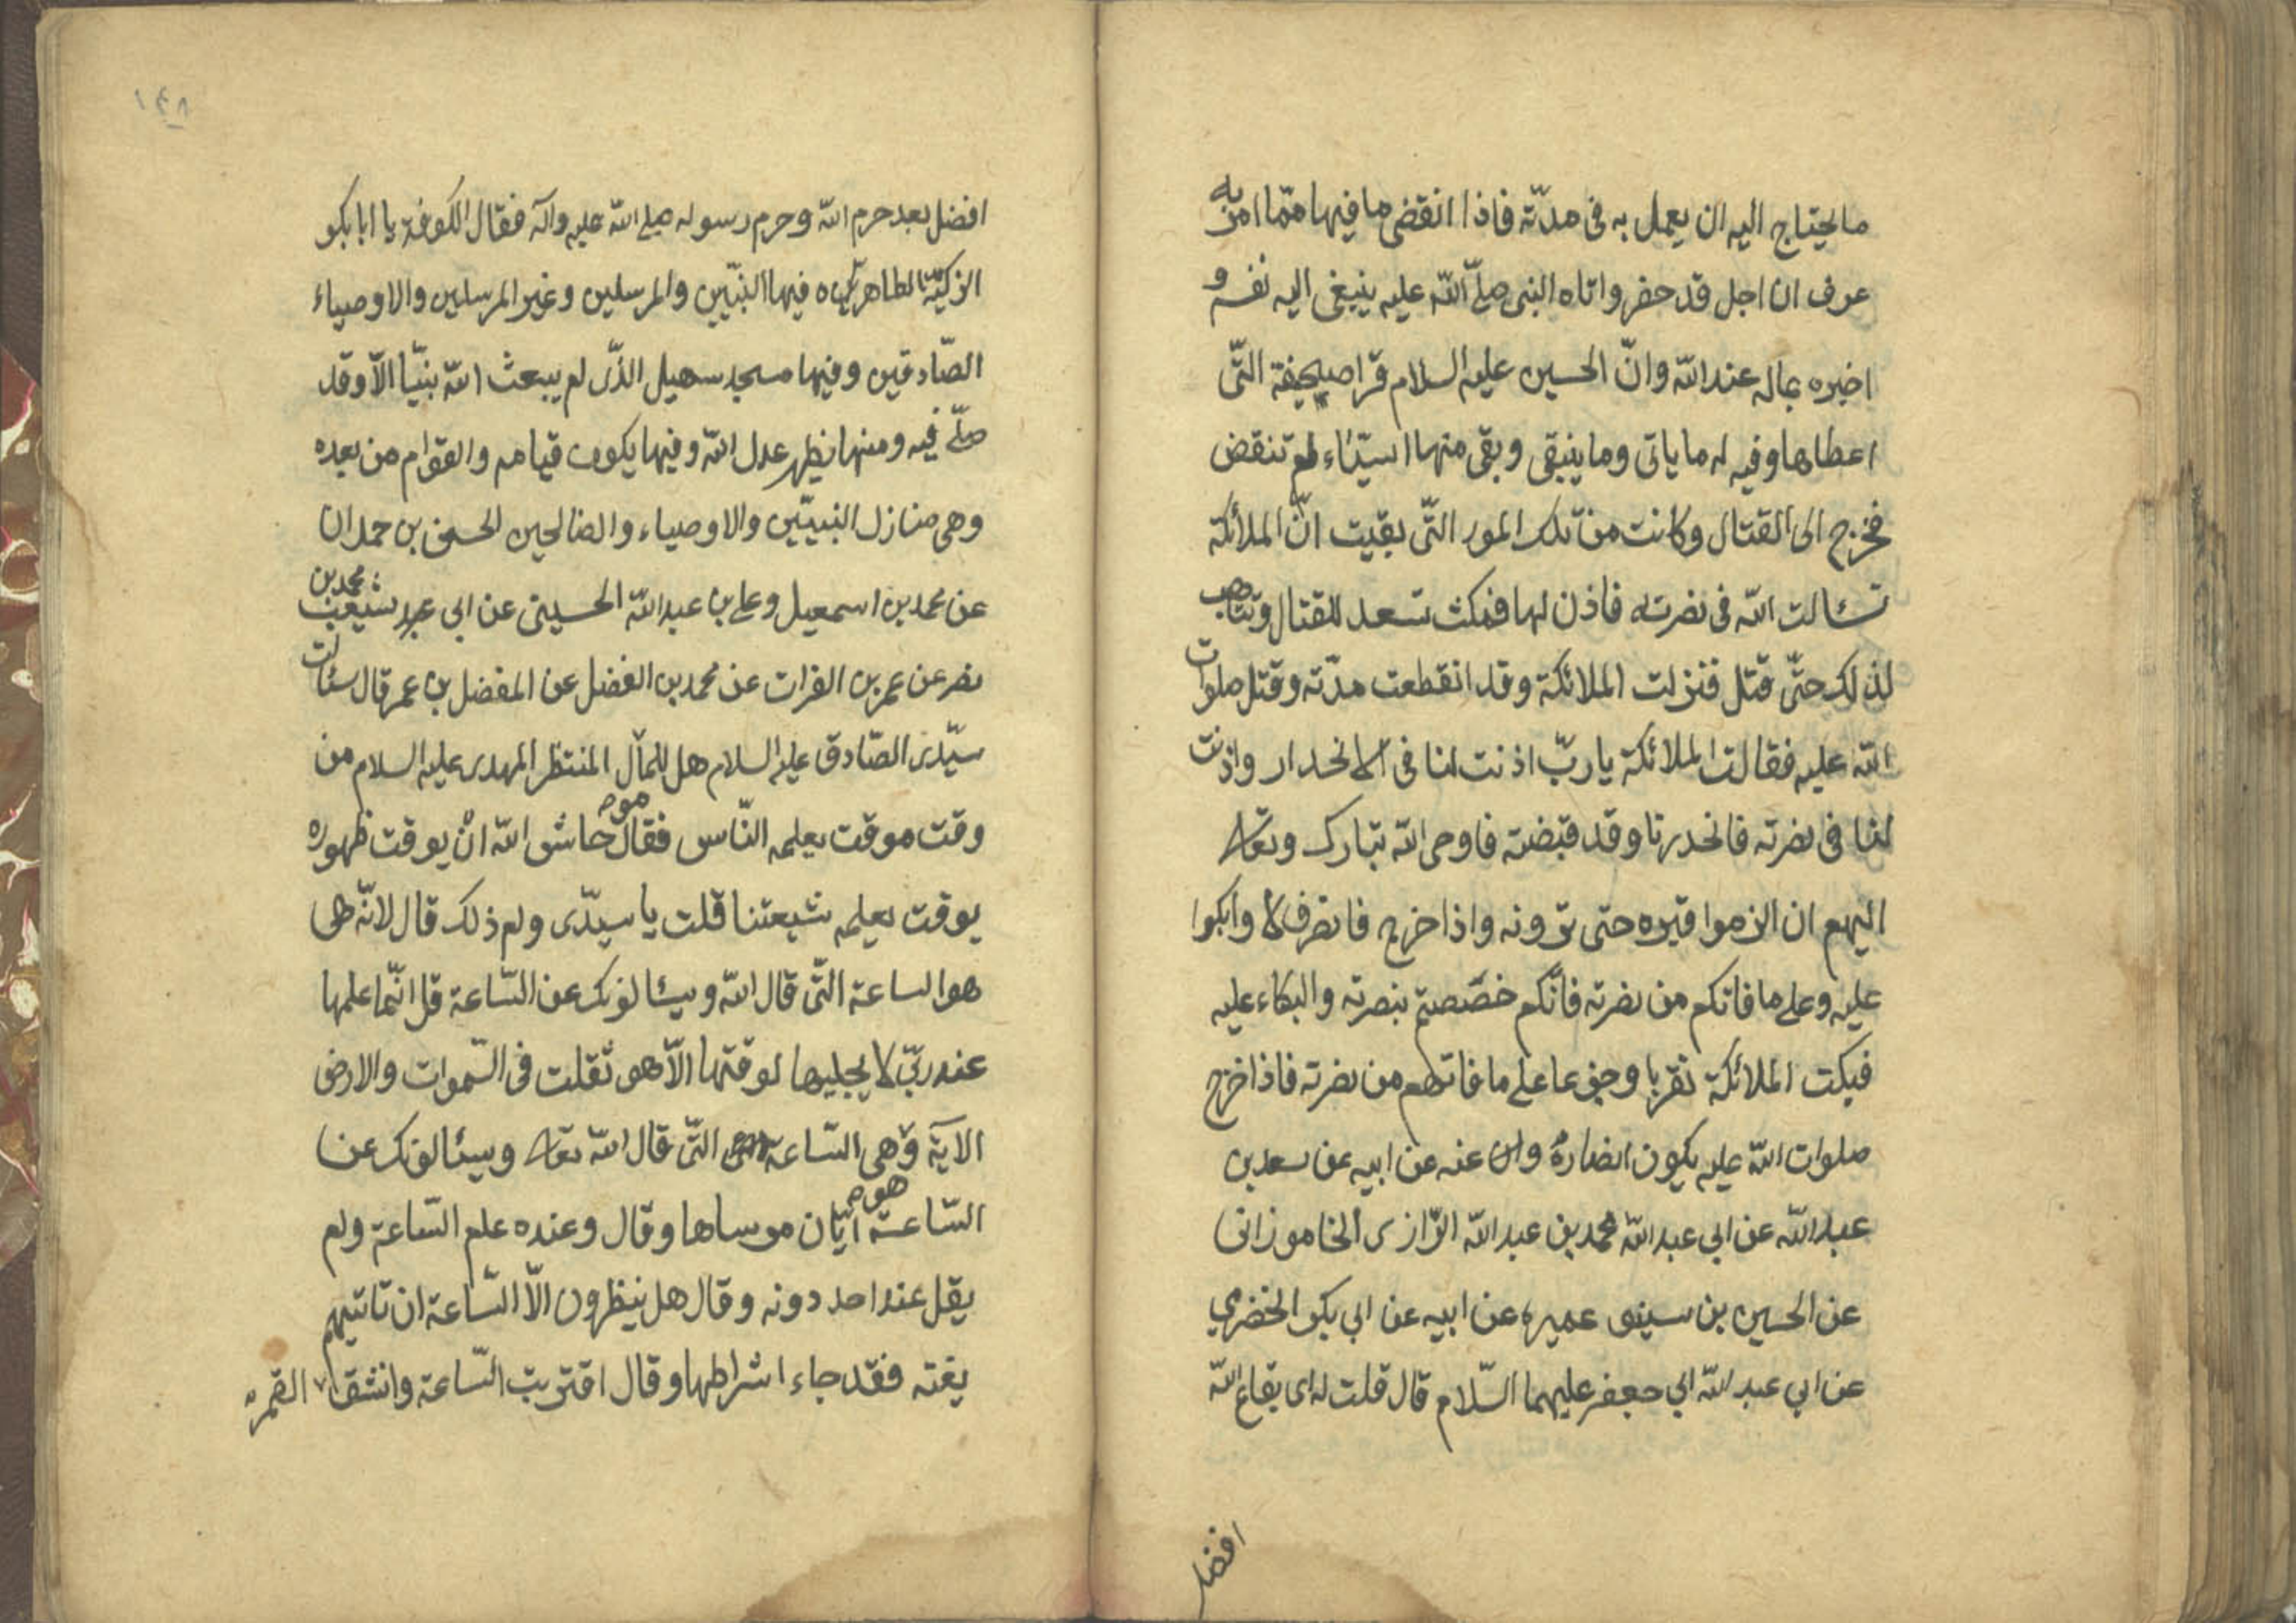 ما يحتاج اليه ان يعمل به فى مدّته فاذا انقضى ما فيها ممّا امر به
عرف ان اجل قد حضر واتاه النبى صلّى الله عليه ينبغى اليه نفسه و
اخبره بماله عند الله وانّ الحسين عليه السلام قرا صحيفة التّى
اعطاها وفيه له ما ياتى وما ينبقى وبقى منها اسيّاء لم تنقض
فخرج الى القتال وكانت من تلك المور التّى بقيت انّ الملائكة
تسالت الله فى نصرته فاذن لها فمكث تسعد للقتال وتتاهب
لذلك حتّى قتل فنزلت الملائكة وقد انقطعت مدّته وقتل صلوات
الله عليه فقالت الملائكة يا ربّ اذنت لنا فى الانحدار واذنت
لنا فى نصرته فانحدرنا وقد قبضته فاوحى الله تبارك وتعالى
اليهم ان الزموا قبره حتى ترونه واذا خرج فانصرف لا وابكوا
عليه وعلى ما فاتكم من نصرته فانّكم خصّصتم بنصرته والبكاء عليه
فبكت الملائكة تقربا وجزعا على ما فاتهم من نصرته فاذا خرج
صلوات الله عليه يكون انصاره وان عنه عن ابيه عن سعد بن
عبد الله عن ابي عبد الله محمد بن عبد الله الرّازى الخاموزانى
عن الحسين بن سيف عميره عن ابيه عن ابي بكر الخضرمي
عن ابي عبد الله ابي جعفر عليهما السّلام قال قلت له اى بقاع الله
افضل
١٤٨
افضل بعد حرم الله وحرم رسوله صلى الله عليه وآله فقال الكوفة يا ابا بكر
الزكيّة الطاهرة فيها النبّيين والمرسلين وغير المرسلين والاوصياء
الصّادقين وفيها مسجد سهيل الذّى لم يبعث الله بنيّا الّا وقد
صلّى فيه ومنها يظهر عدل الله وفيها يكون قيامه والقوّام من بعده
وهى منازل النبييّن والاوصياء والصالحين الحسين بن حمدان
عن محمد بن اسمعيل وعلى بن عبد الله الحسينى عن ابى شعيب محمد بن
نصر عن عمر بن الفرات عن محمد بن الفضل عن المفضل بن عمر قال سئالت
سيّدى الصّادق عليه السلام هل للمآل المنتظر المهدى عليه السلام من
وقت موقت يعلمه النّاس فقال حاش الله انْ يوقت ظهوره
يوقت يعلمه شيعتنا قلت يا سيدّى ولم ذلك قال لانّه هى
هو الساعة التّى قال الله ويسئالونك عن السّاعة قل انّما علمها
عند ربّى لا يجليها لوقتها الّا هو ثقلت فى السّموات والارض
الآية وهى السّاعة التّى قال الله تعالى ويسئالونك عن
السّاعة ايّان موساها وقال وعنده علم السّاعة ولم
يقل عند احد دونه وقال هل ينظرون الّا السّاعة ان تاتيهم
بغته فقد جاء اشراطها وقال اقتربت السّاعة وانشق القمر